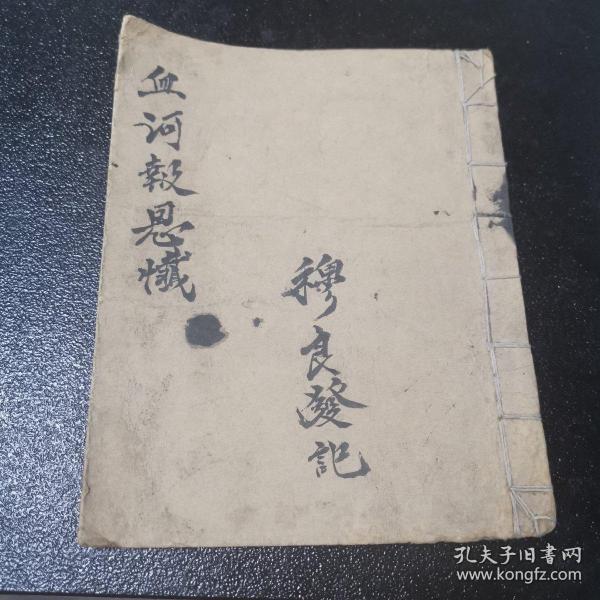 血河報恩懺
穆良發記
孔夫子旧書网
www.kongfz.com